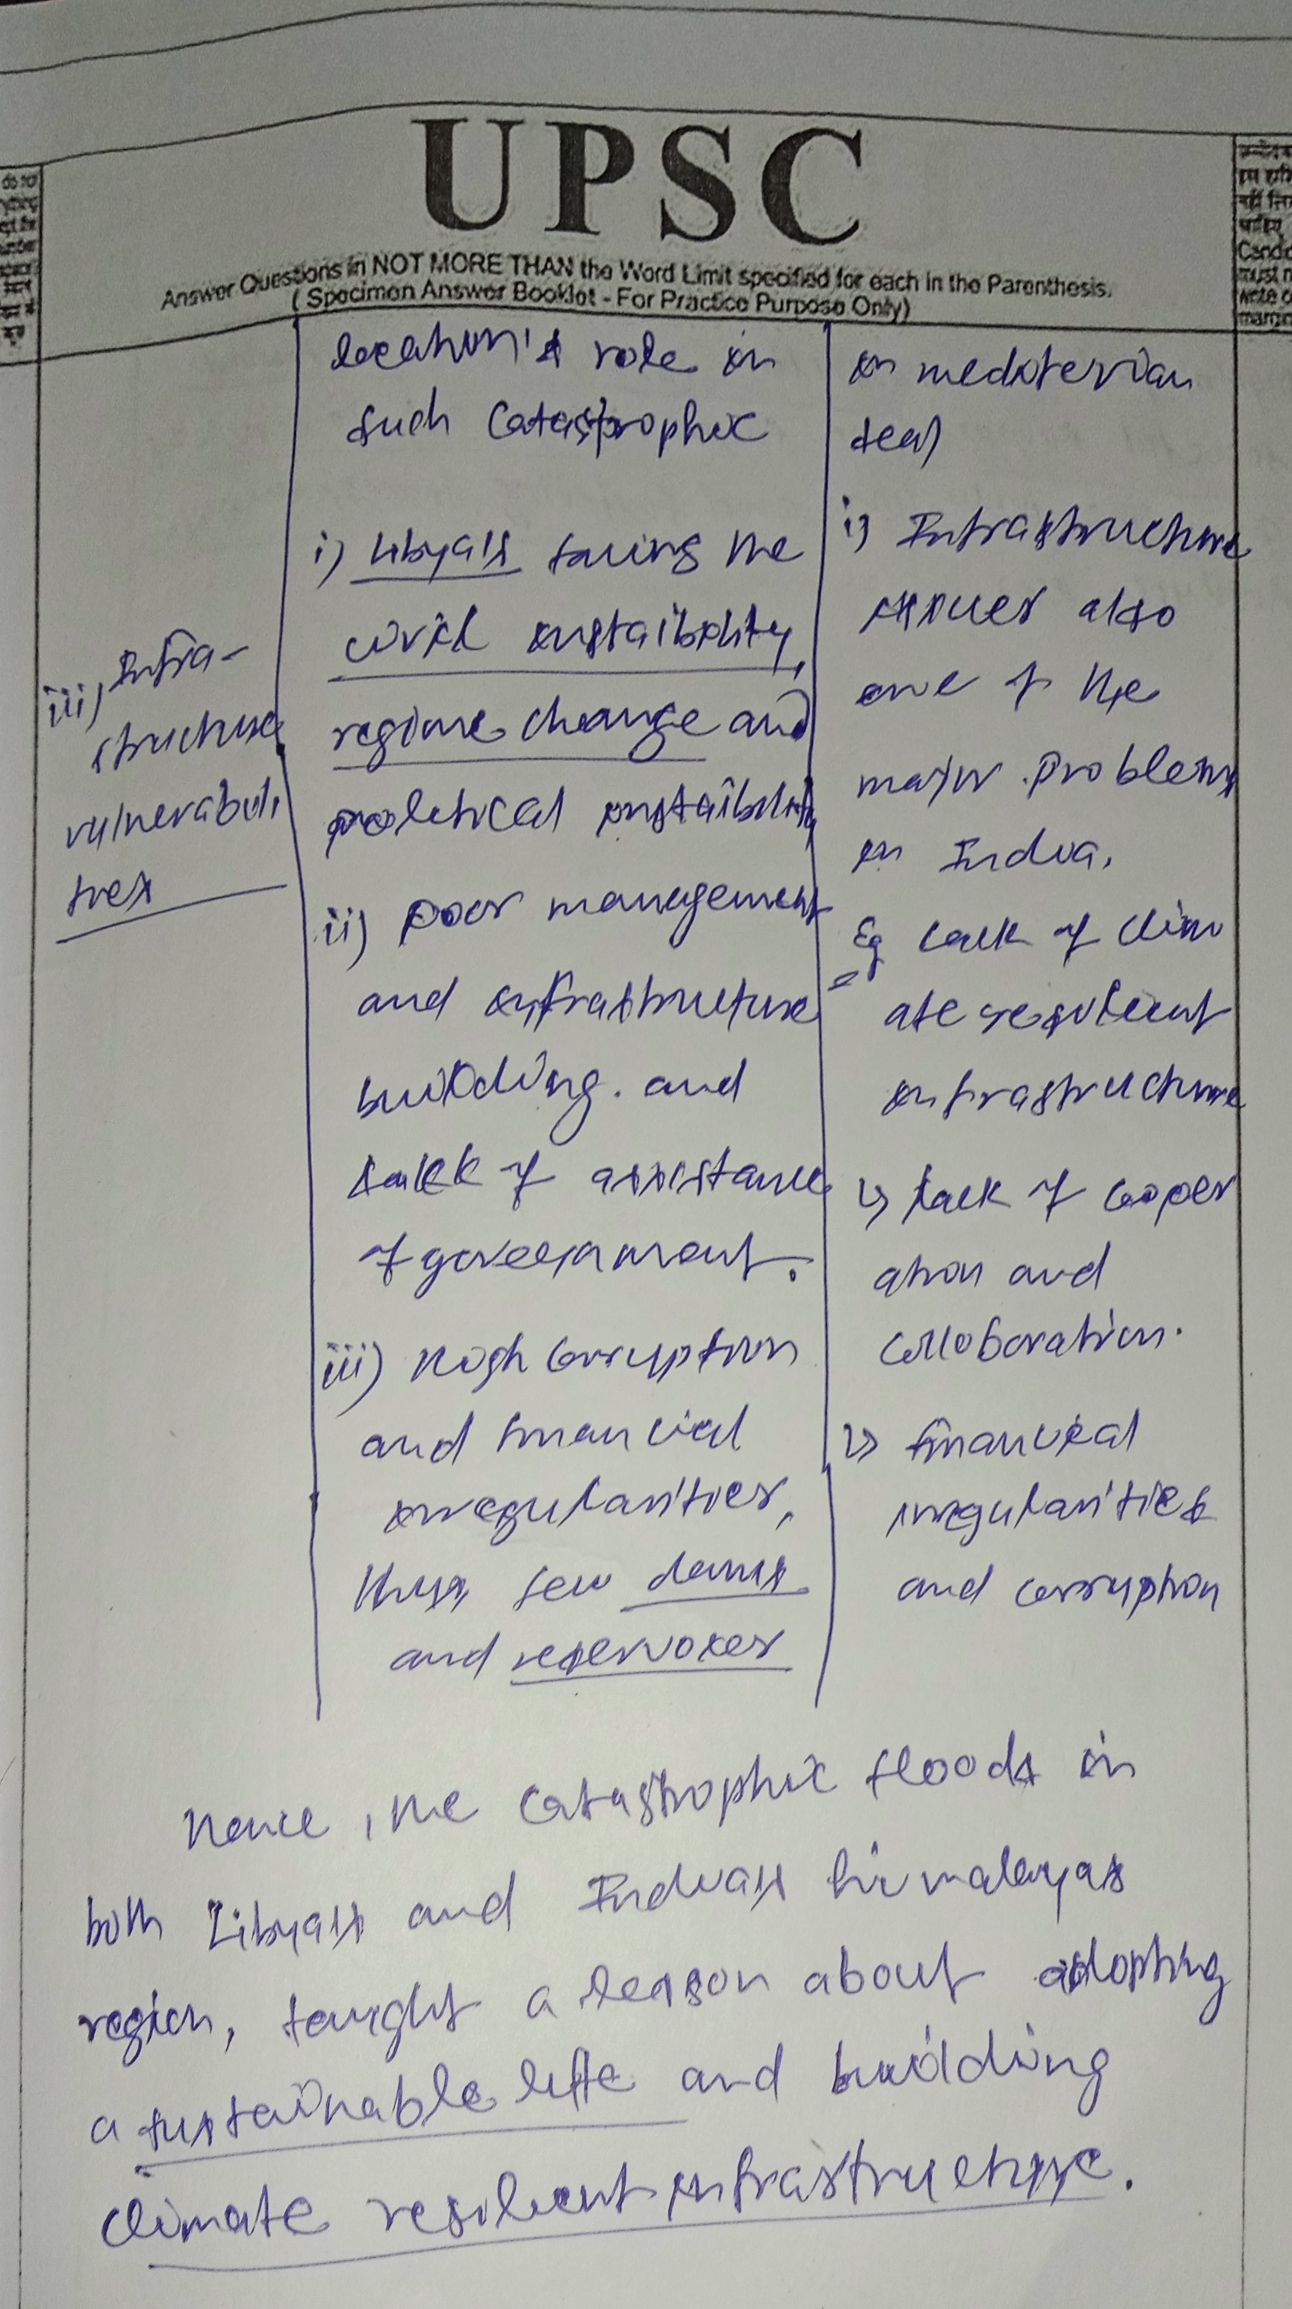 UPSC
Answer Questions in NOT MORE THAN the Word Limit specified for each in the Parenthesis.
( Specimen Answer Booklet - For Practice Purpose Only)
iii) Infra-
structure
vulnerabili
ties
location's role in
such catastrophic
i) Libya's facing the
civil instaibility,
regime change and
political instaibility
ii) poor management
and infrastructure
building. and
lack of assistance
of government.
iii) High corruption
and financial
irregularities,
thus, few dams
and reservoirs
in mediterian
sea)
i) Infrastructure
issues also
one of the
major problems
in India.
Eg lack of clim
ate resilient
infrastructure
↳ lack of cooper
ation and
colloboration.
↳ financial
irregularities
and corruption
Hence, the catastrophic floods in
both Libya's and India's himalayas
region, taught a leason about adopting
a sustainable life and building
climate resilient infrastructure.